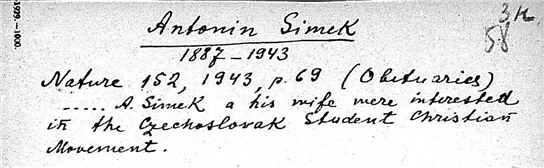 Antonin Simek
3k.
58
1887-1943
Nature 152, 1943, p. 69 (Obituaries)
..... A. Simek a his wife were interested
in the Czechoslovak Student Christian
Movement.